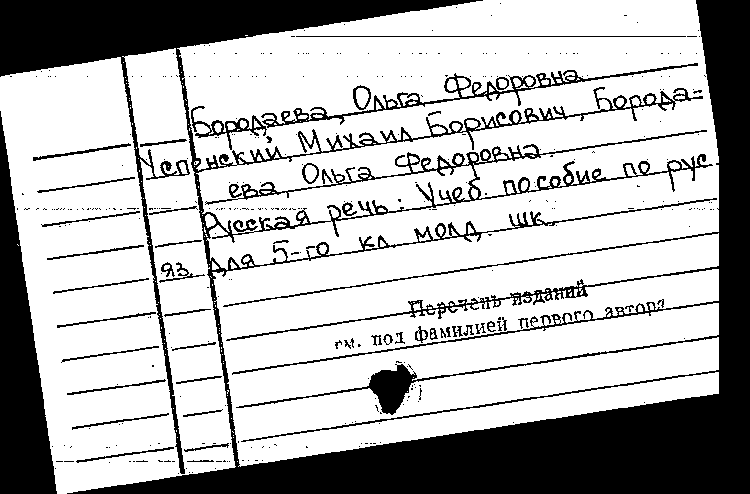 Бородаева, Ольга Федоровна
Успенский, Михаил Борисович,Борода=
ева, Ольга Федоровна.
Русская речь: Учеб. пособие по рус
яз. для 5-го кл. молд. шк.
Перечень изданий
см. под фамилией первого автора